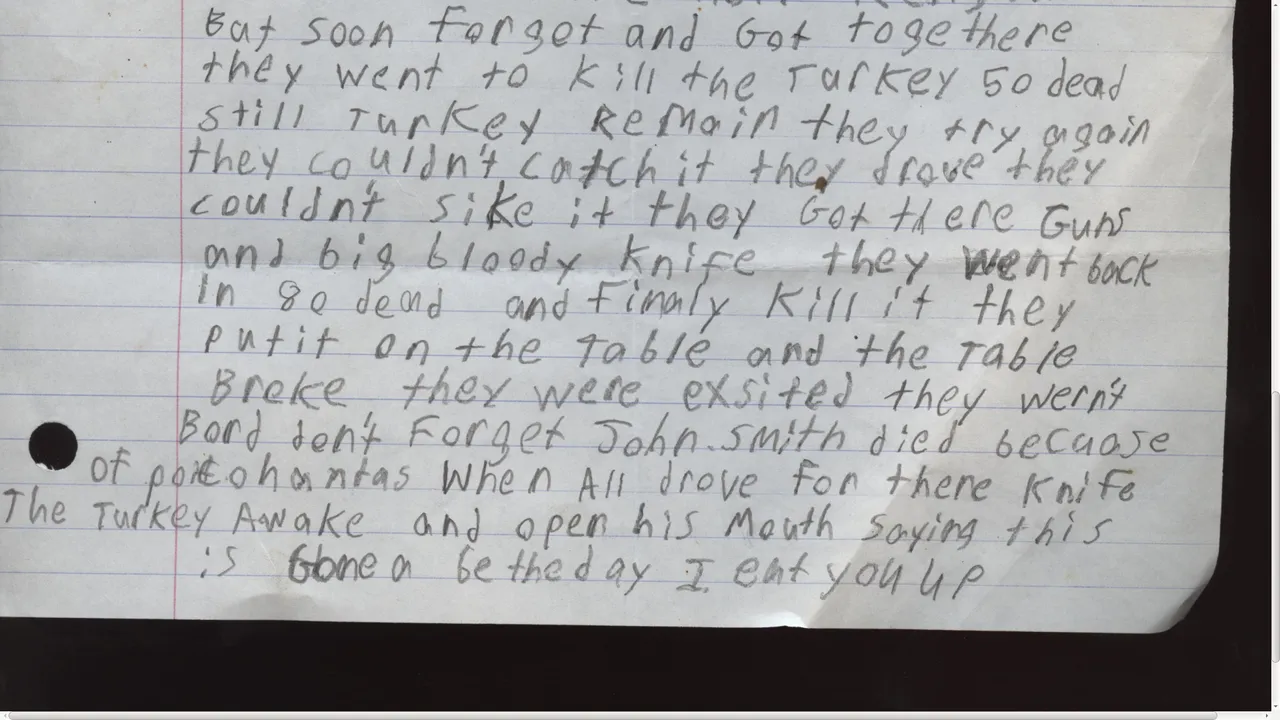 But soon forget and Got togethere
they went to kill the Turkey 50 dead
still Turkey Remain they try again
they couldn't catch it they drove they
couldn't sike it they Got there Guns
and big bloody knife they went back
in 80 dead and finaly kill it they
put it on the Table and the Table
Broke they were exsited they wern't
Bord don't Forget John smith died becuase
of When All drove for there knife
The Turkey Awake and open his Mouth saying this
is Gonea be the day I eat you up